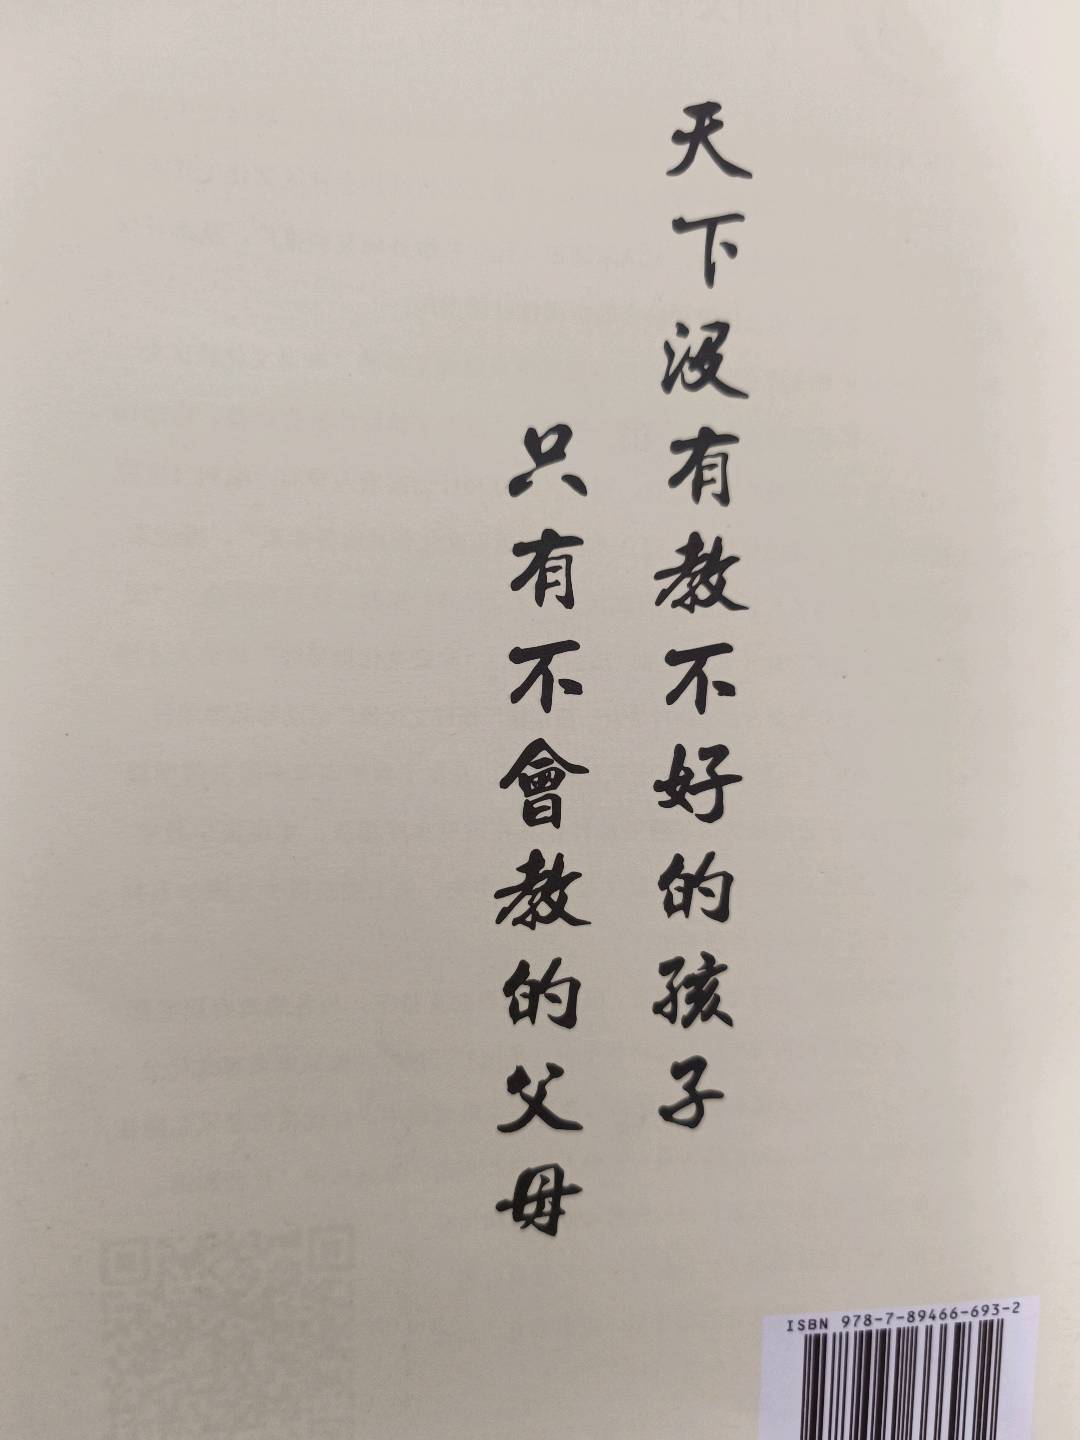 天下没有教不好的孩子
只有不會教的父母
ISBN 978-7-89466-693-2